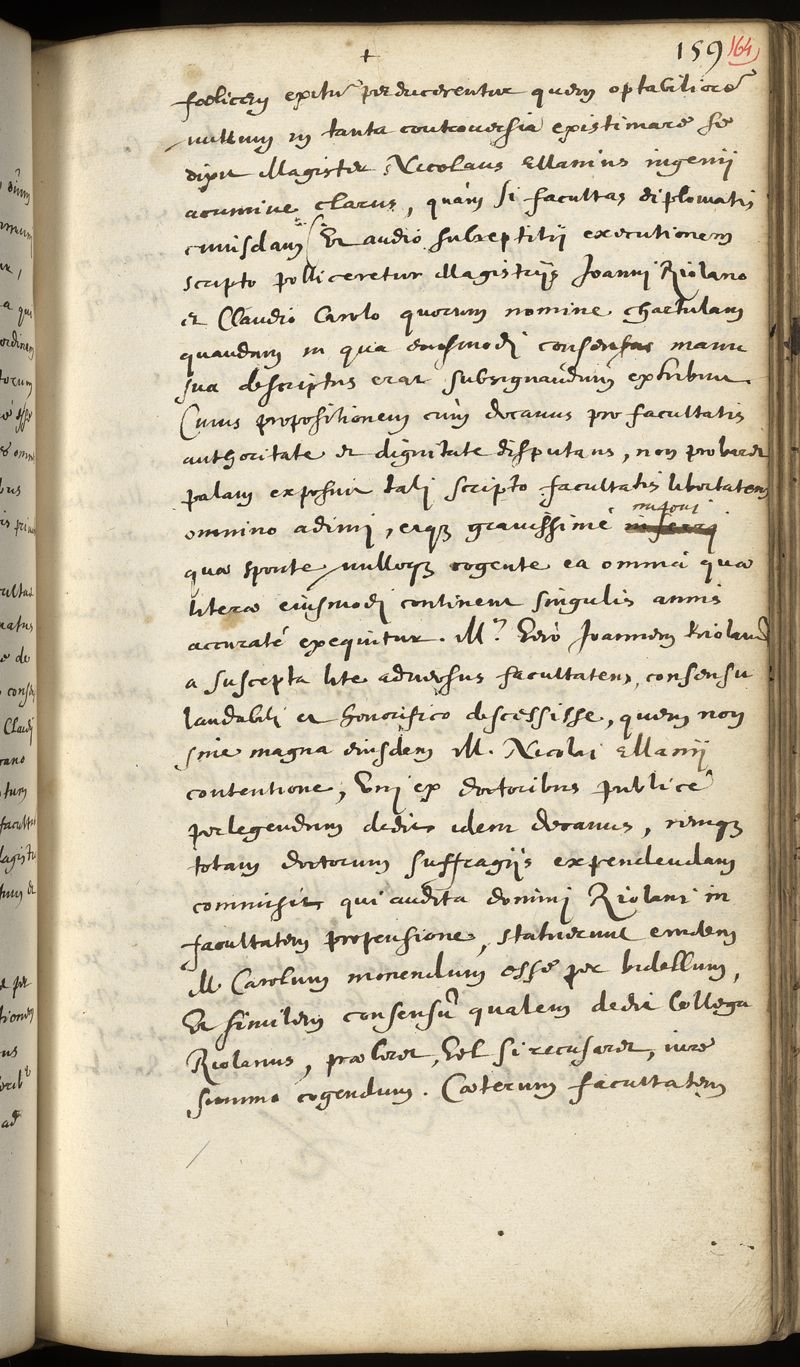 +
159 164
foelicem exitũ perducerentur quem optabiliorẽ
nullum in tanta controversia existimare se
dixit Magister Nicolaus Ellanius ingenij
acumine clarus, quàm si facultas diplomatis
cuiusdam (Et audio subreptitij executionem
scripto polliceretur Magistrijs Joanni Riolano
et Claudio Carolo quorum nomine chartulam
quandam in qua eiusmodi consensus manu
sua descriptus erat subsignandum exhibuit.
Cuius propositionem cùm decanus pro facultatis
authoritate et dignitate disputans, non probaret
palam exposuit tali scripto facultatis libertatem
omnino adimi, eiqȝ gravissimè imponi
quæ sponte nulloqȝ cogente ea omnia quæ
literæ eiusmodi continent singulis annis
accuratè exequitur. M. Verò Joannem Riolanũ
a suscepta lite adversus facultatem, consensu
laudabili et honorifico descessisse, quem non
sine magna eiusdem M. Nicolai Ellanij
contentione, Vni ex doctoribus publicè
perlegendum dedit idem decanus, remqȝ
totam doctorum suffragijs expendendam
commisit qui audita domini Riolani in
facultatem propensione, statuerunt eundem
M Carolum monendum esse per bidellum,
Et similem consensũ qualem dedit Collega
Riolanus, præberet, Vel si recusaret, iure
summo cogendum. Cæterum facultatem